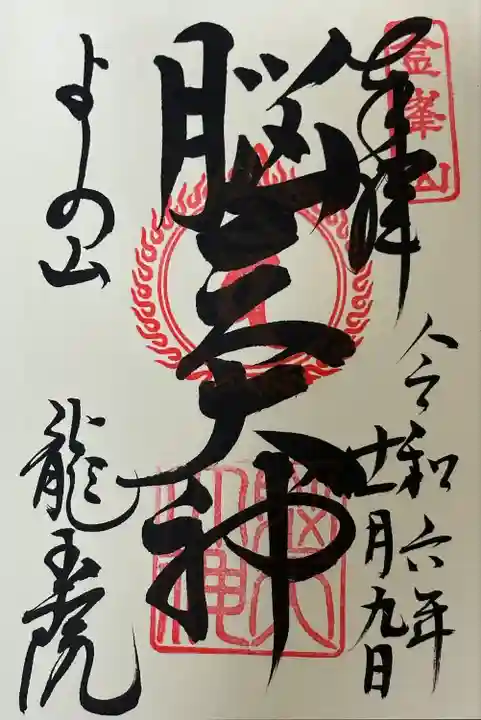 金峯山
奉拝
令和六年
十一月九日
脳天大神
脳天大神
よしの山
龍王院